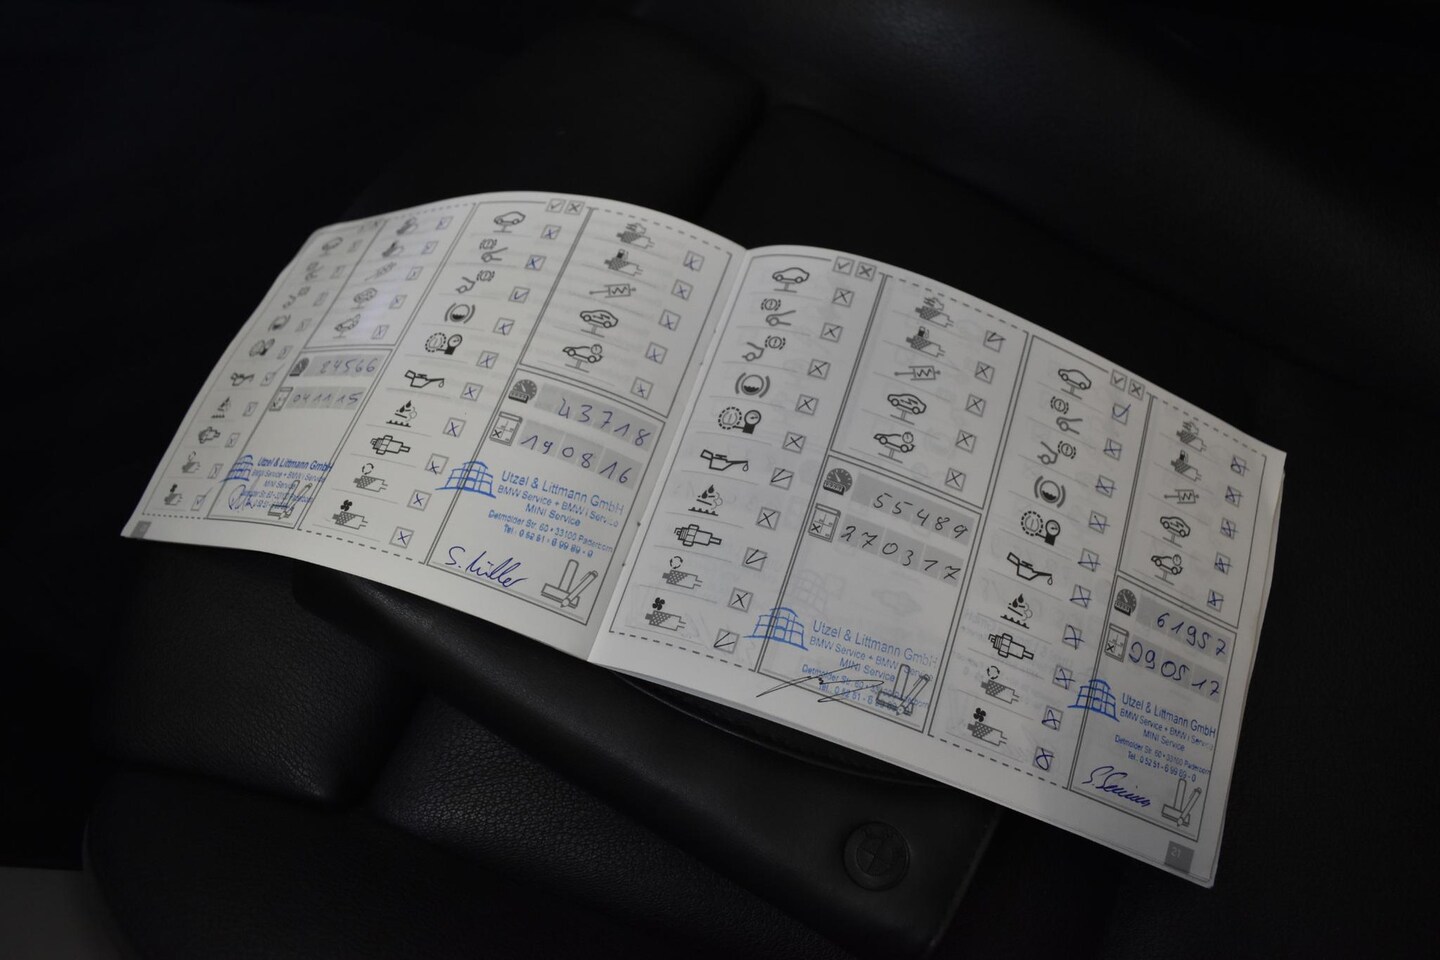 24566
041115
Utzel & Littmann GmbH
BMW Service + BMW i Service
MINI Service
43718
190816
Utzel & Littmann GmbH
BMW Service + BMW i Service
MINI Service
Detmolder Str. 60 • 33100 Paderborn
Tel.: 0 52 51 - 6 99 89 - 0
S. Müller
55489
270317
Utzel & Littmann GmbH
BMW Service + BMW i Service
MINI Service
61957
290517
Utzel & Littmann GmbH
BMW Service + BMW i Service
MINI Service
Detmolder Str. 60 • 33100 Paderborn
Tel.: 0 52 51 - 6 99 89 - 0
21